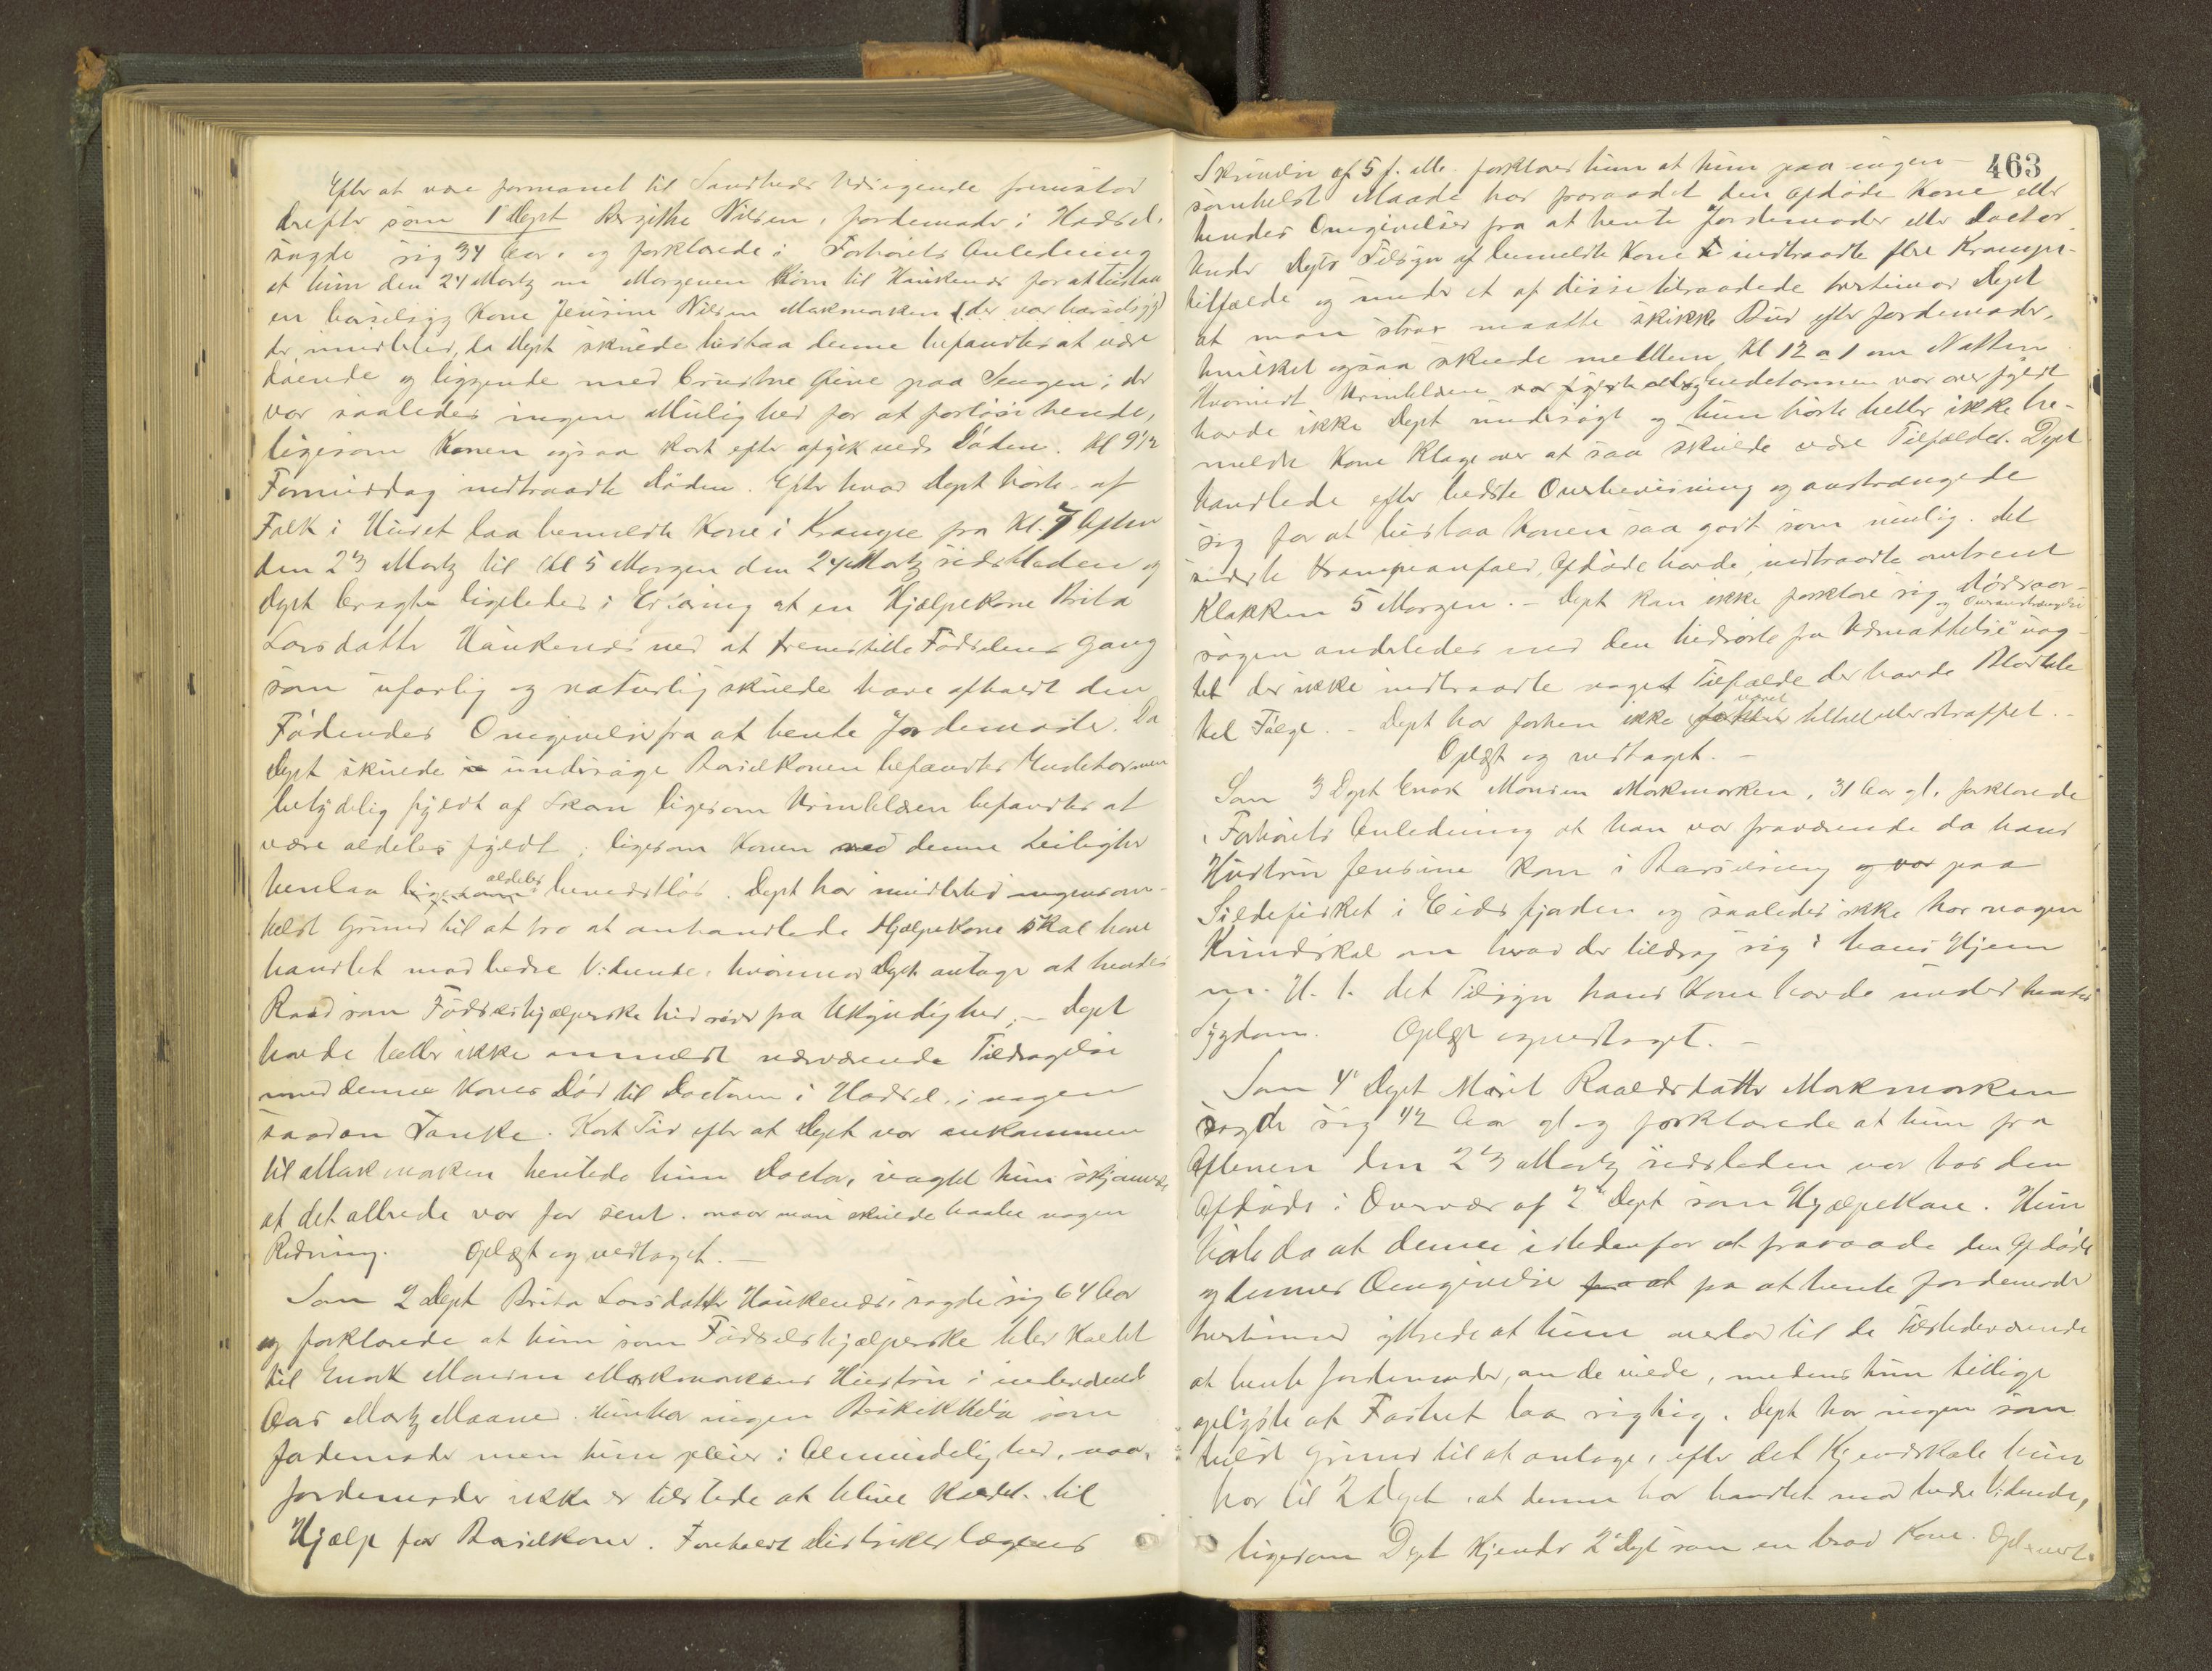 Efter at være formanet til Sandheds Udsigende fremstod
derefter som 1ste Dept Bergithe Nilsen, Jordemoder i Hadsel,
sagde sig 34 Aar, og forklarede i Forhørets Anledning
at hun den 24 Martz om Morgenen kom til Haukenæs for at bistaa
en barselsyg Kone Jensine Nilsen Markmarken (der var barselsyg)
der imidlertid, da Dept skulde bistaa denne befandtes at være
døende og liggende med brustne Øine paa Sengen; der
var saaledes ingen Mulighed for at forløse hende,
ligesom Konen ogsaa kort efter afgik ved Døden. Kl 9 1/2
Formiddag indtraadte Døden. Efter hvad Dept hørte af
Folk i Huset laa bemeldte Kone i Krampe fra Kl. 7 Aften
den 23 Martz til Kl 5 Morgen den 24 Martz sidstleden og
Dept bragte ligeledes i Erfaring at en Hjælpekone Brita
Larsdatter Haukenæs ved at fremstille Fødselens Gang
som ufarlig og naturlig skulde have afholdt den
Fødendes Omgivelse fra at hente Jordemoder. Da
Dept skulde undersøge Barselkonen befandtes Endetarmen
betydelig fyldt af Skarn ligesom Urinblæren befandtes at
være aldeles fyldt, ligesom Konen ved denne Leilighed
henlaa ligesom aldeles bevidstløs. Dept har imidlertid ingensom-
helst Grund til at tro at omhandlede Hjælpekone skal have
handlet mod bedre Vidende, hvorimod Dept antager at hendes
Raad som Fødselshjælperske hidrører fra Ukyndighed. – Dept
havde heller ikke anmeldt nærværende Tildragelse
med denne Kones Død til Doctoren i Hadsel, i nogen
saadan Tanke. Kort Tid efter at Dept var ankommen
til Markmarken hentede hun Doctor, uagtet hun skjønnede
at det allerede var for sent, naar man skulde haabe nogen
Redning. Oplæst og vedtaget. –
Som 2 Dept Brita Larsdatter Haukenæs, sagde sig 64 Aar
og forklarede at hun som Fødselshjælperske blev kaldet
til Enok Monsen Markmarkens Hustru i indeværende
Aars Martz Maaned. Hun har ingen Beskikkelse som
Jordemoder men hun pleier i Almindelighed, naar
Jordemoder ikke er tilstede at blive kaldet til
Hjælp for Barselkoner. Foreholdt Distriktslægens
463
Skrivelse af 5 f. M. forklarer hun at hun paa ingen
somhelst Maade har fraraadet den afdøde Kone eller
hendes Omgivelser fra at hente Jordemoder eller Doctor.
Under Depts Tilsyn af bemeldte Kone indtraadte flere Krampe-
tilfælde og under et af disse tilraadede bestemt Dept
at man strax maatte skikke Bud efter Jordemoder,
hvilket ogsaa skede mellem Kl 12 a 1 om Natten
Hvorvidt Urinblæren og Endetarmen var overfyldt
havde ikke Dept undersøgt og hun hørte heller ikke be-
meldte Kone klage over at saa skulde være Tilfældet. Dept
handlede efter bedste Overbevisning og anstrængede
sig for at bistaa Konen saa godt som mulig. Det
sidste Krampeanfald, Afdøde havde, indtraadte omtrent
Klokken 5 Morgen. – Dept kan ikke forklare sig Dødsaar-
sagen anderledes end den hidrørte fra Udmattelse og Overanstrængelse uag-
tet der ikke indtraadte noget Tilfælde der havde Blodtab
til Følge. – Dept har forhen ikke været tiltalt eller straffet. –
Oplæst og vedtaget. –
Som 3 Dept Enok Monsen Markmarken, 31 Aar gl. forklarede
i Forhørets Anledning at han var fraværende da hans
Hustru Jensine kom i Barselseng og var paa
Sildefisket i Eidsfjorden og saaledes ikke har nogen
Kundskab om hvad der tildrog sig i hans Hjem
m. H. t. det Tilsyn hans Kone havde under hendes
Sygdom. Oplæst og vedtaget. –
Som 4de Dept Marit Raaldsdatter Markmarken
sagde sig 42 Aar gl og forklarede at hun fra
Aftenen den 23 Martz sidstleden var hos den
Afdøde i Overvær af 2den Dept som Hjælpekone. Hun
hørte da at denne istedenfor at fraraade den Afdøde
og dennes Omgivelse fra at hente Jordemoder
bestemt ytrede at hun overlod til de Tilstedeværende
at hente Jordemoder, om de vilde, medens hun tillige
oplyste at Fostret laa rigtig. Dept har ingen som
helst Grund til at antage, efter det Kjendskab hun
har til 2 Dept, at denne har handlet mod bedre Vidende,
ligesom Dept kjender 2de Dept som en brav Kone. Opl. & vedt.